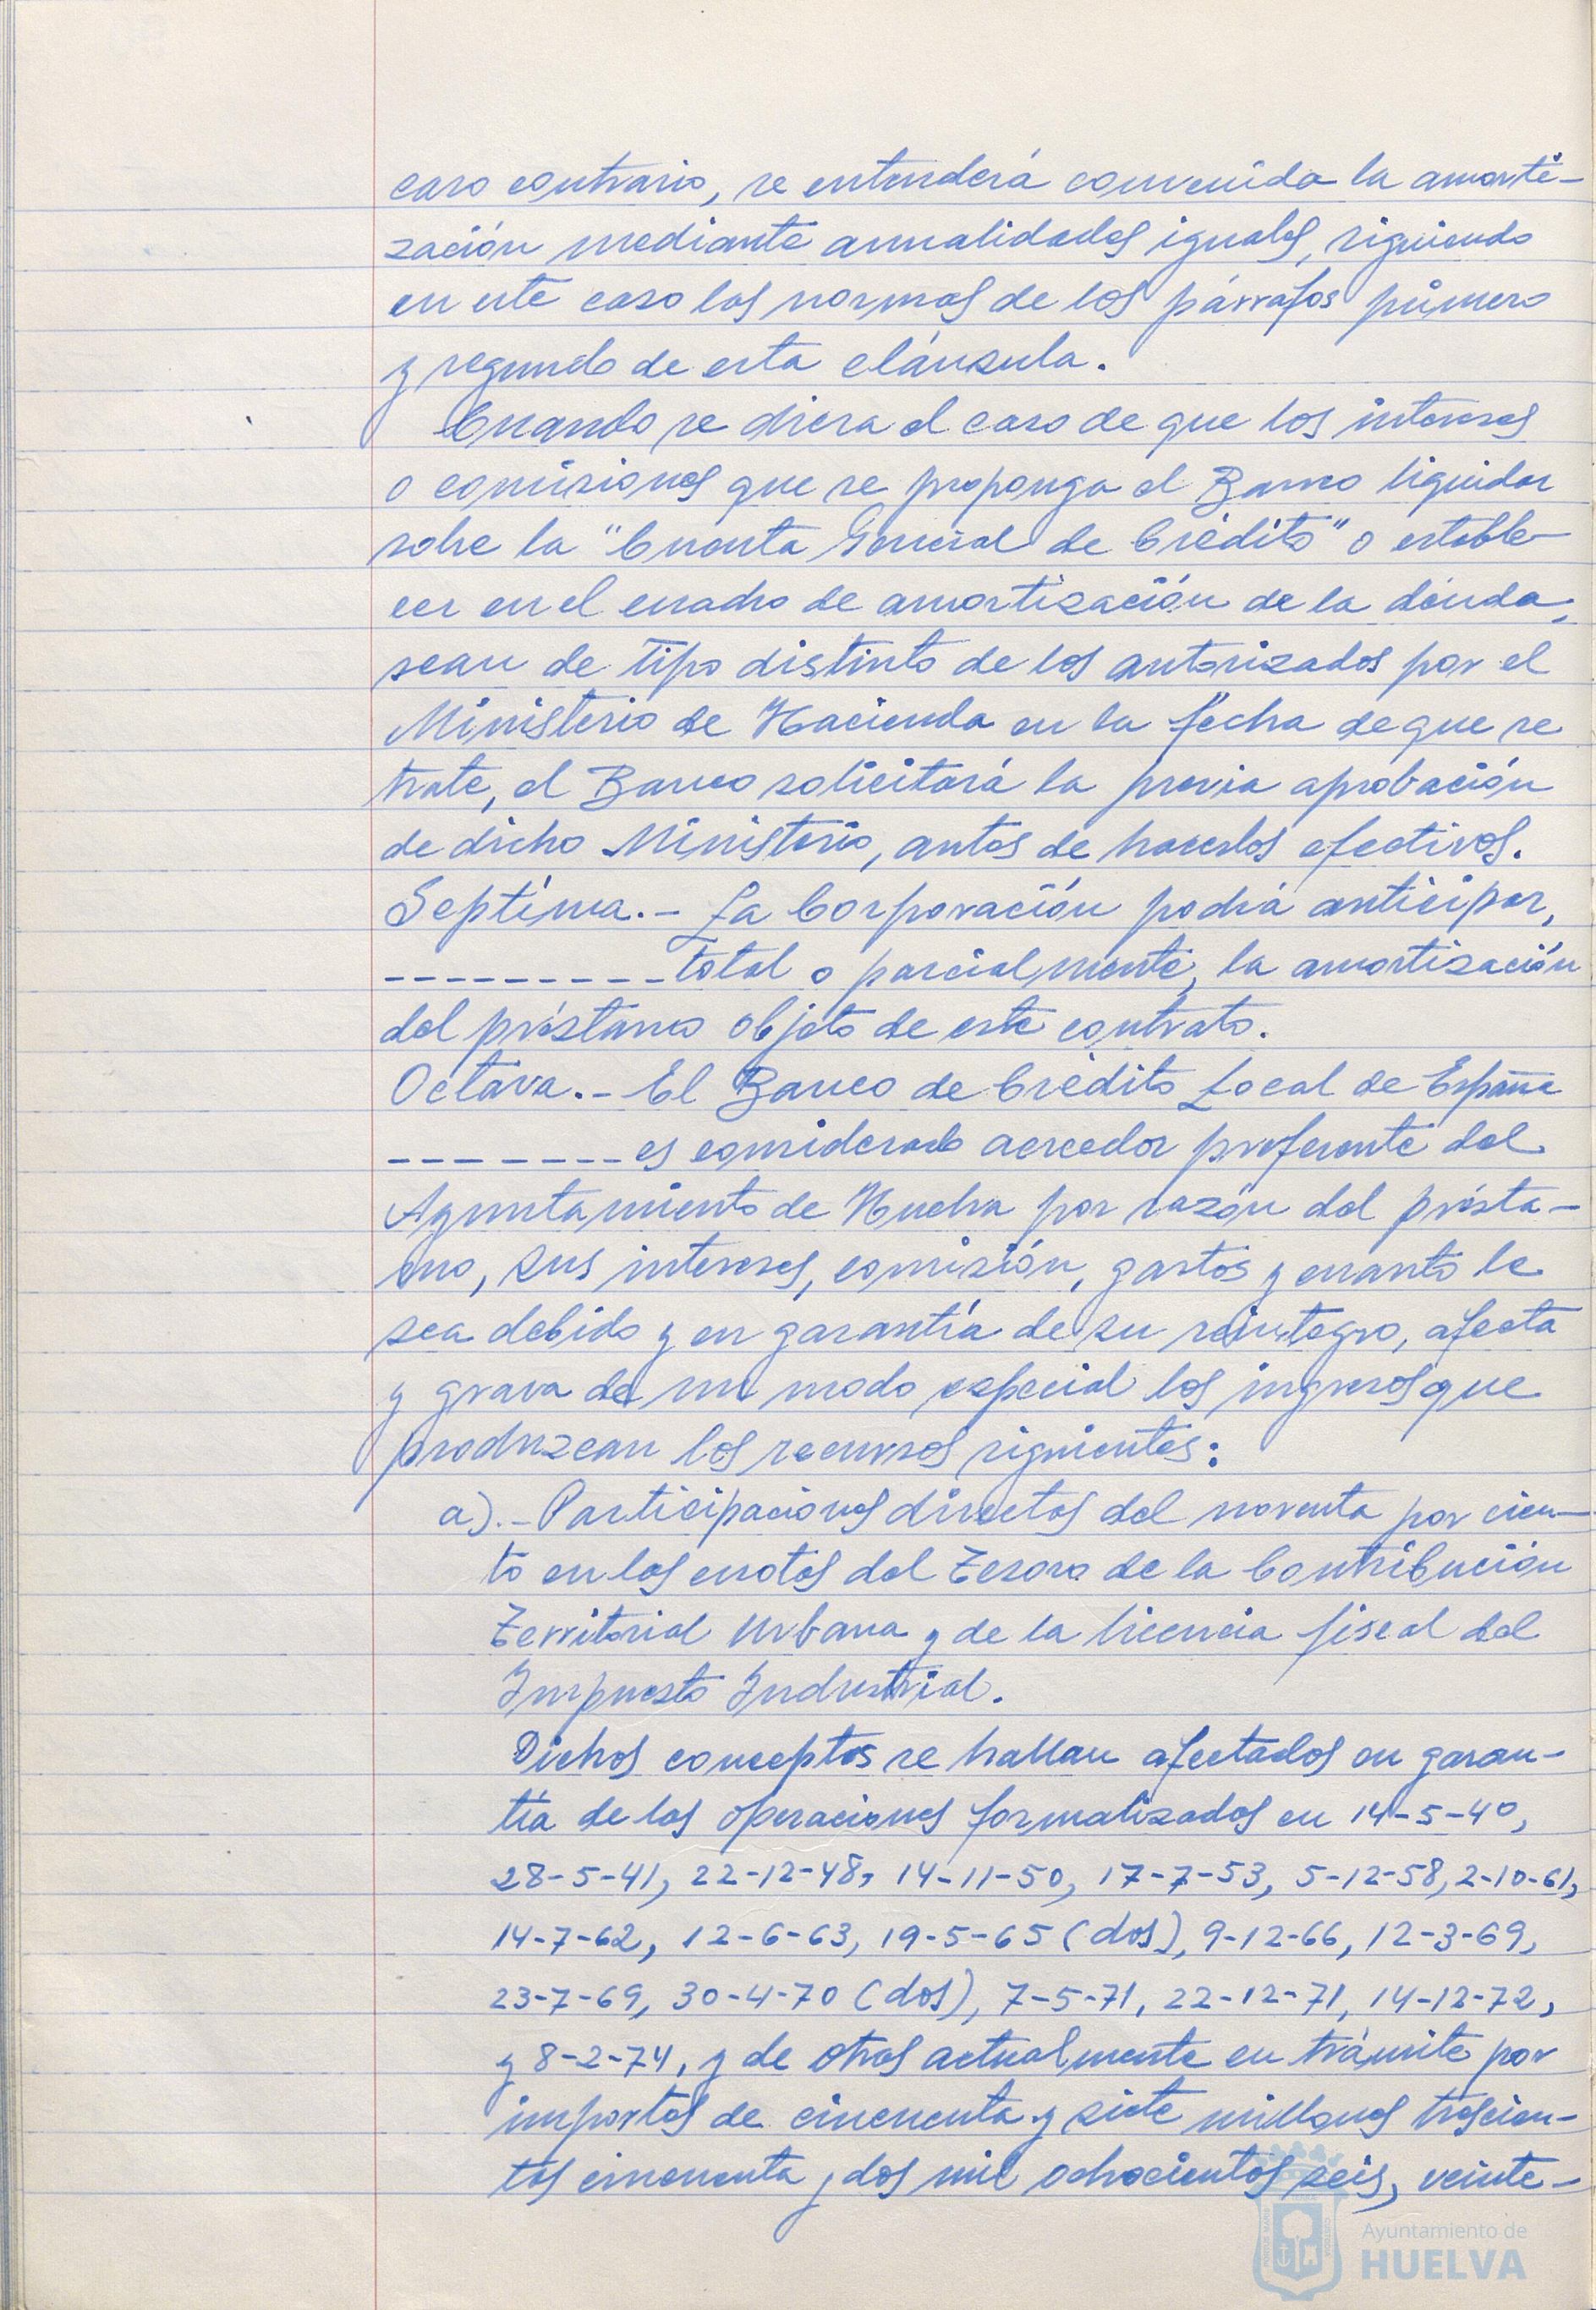 caso contrario, se entenderá convenida la amorti-
zación mediante anualidades iguales, siguiendo
en este caso las normas de los párrafos primero
y segundo de esta cláusula.
Cuando se diera el caso de que los intereses
o comisiones que se proponga el Banco liquidar
sobre la "Cuenta General de Crédito" o estable-
cer en el cuadro de amortización de la deuda,
sean de tipo distinto de los autorizados por el
Ministerio de Hacienda en la fecha de que se
trate, el Banco solicitará la previa aprobación
de dicho Ministerio, antes de hacerlos efectivos.
Séptima.- La Corporación podrá anticipar,
--------- total o parcialmente, la amortización
del préstamo objeto de este contrato.
Octava.- El Banco de Crédito Local de España
-------- es considerado acreedor preferente del
Ayuntamiento de Huelva por razón del présta-
mo, sus intereses, comisión, gastos y cuanto le
sea debido y en garantía de su reintegro, afecta
y grava de un modo especial los ingresos que
produzcan los recursos siguientes:
a).- Participaciones directas del noventa por cien-
to en las cuotas del Tesoro de la Contribución
Territorial Urbana y de la licencia fiscal del
Impuesto Industrial.
Dichos conceptos se hallan afectados en garan-
tía de las operaciones formalizadas en 14-5-40,
28-5-41, 22-12-48, 14-11-50, 17-7-53, 5-12-58, 2-10-61,
14-7-62, 12-6-63, 19-5-65 (dos), 9-12-66, 12-3-69,
23-7-69, 30-4-70 (dos), 7-5-71, 22-12-71, 14-12-72,
y 8-2-74, y de otras actualmente en trámite por
importes de cincuenta y siete millones trescien-
tas cincuenta y dos mil ochocientas seis, veinte-
Ayuntamiento de
HUELVA